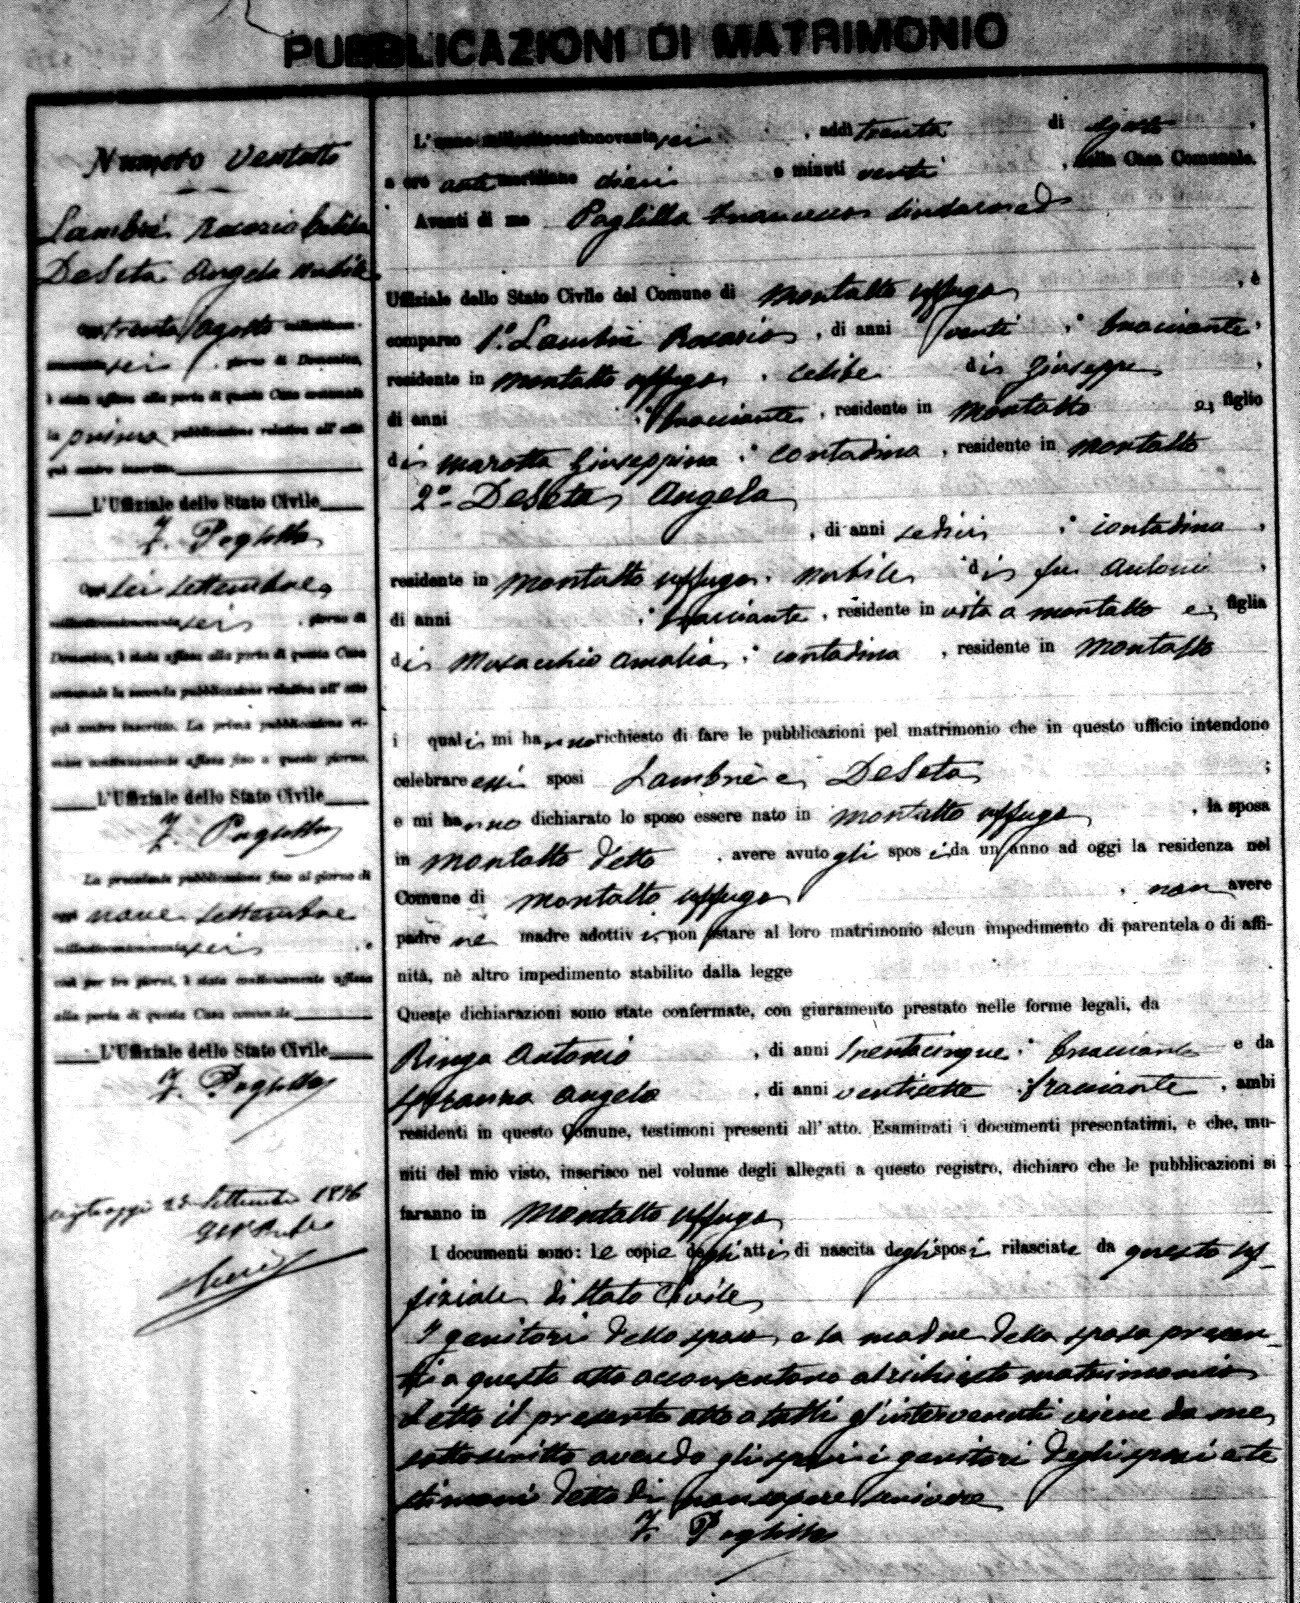 PUBBLICAZIONI DI MATRIMONIO
Numero Ventotto
Lambrè Rosario Celibe
DeSeta Angela nubile
Oggi trenta agosto milleottocento-
novantasei, giorno di Domenica,
è stata affissa alla porta di questa Casa comunale
la prima pubblicazione relativa all'atto
qui contro inscritto.
L'Uffiziale dello Stato Civile
F. Paglilla
Oggi sei settembre
milleottocentonovantasei, giorno di
Domenica, è stata affissa alla porta di questa Casa
comunale la seconda pubblicazione relativa all'atto
qui contro inscritto. La prima pubblicazione ri-
mase continuamente affissa fino a questo giorno.
L'Uffiziale dello Stato Civile
F. Paglilla
La precedente pubblicazione fino al giorno di
oggi nove settembre
milleottocentonovantasei, e
così per tre giorni, è stata continuamente affissa
alla porta di questa Casa comunale.
L'Uffiziale dello Stato Civile
F. Paglilla
Settembre 1896
L'anno milleottocentonovantasei, addì trenta di Agosto,
a ore antimeridiane dieci e minuti venti, nella Casa Comunale.
Avanti di me Paglilla Francesco Sindaco ed
Uffiziale dello Stato Civile del Comune di Montalto Uffugo, è
comparso 1º. Lambrè Rosario, di anni venti, bracciante,
residente in Montalto Uffugo, celibe di Giuseppe,
di anni, bracciante, residente in Montalto e, figlio
di Marotta Giuseppina, contadina, residente in Montalto
2º- DeSeta Angela
, di anni sedici, contadina,
residente in Montalto Uffugo, nubile di fu Antonio,
di anni, bracciante, residente in vita a Montalto e, figlia
di Musacchio Amalia, contadina, residente in Montalto
i quali mi hanno richiesto di fare le pubblicazioni pel matrimonio che in questo ufficio intendono
celebrare essi sposi Lambrè e DeSeta;
e mi hanno dichiarato lo sposo essere nato in Montalto Uffugo, la sposa
in Montalto detto, avere avuto gli sposi da un anno ad oggi la residenza nel
Comune di Montalto Uffugo, non avere
padre nè madre adottivi, non ostare al loro matrimonio alcun impedimento di parentela o di affi-
nità, nè altro impedimento stabilito dalla legge
Queste dichiarazioni sono state confermate, con giuramento prestato nelle forme legali, da
Ringa Antonio, di anni trentacinque, bracciante e da
Angelo, di anni ventisette, bracciante, ambi
residenti in questo Comune, testimoni presenti all'atto. Esaminati i documenti presentatimi, e che, mu-
niti del mio visto, inserisco nel volume degli allegati a questo registro, dichiaro che le pubblicazioni si
faranno in Montalto Uffugo
I documenti sono: le copie degli atti di nascita degli sposi rilasciate da questo uf-
fiziale di Stato Civile
I genitori dello sposo e la madre della sposa presen-
ti a questo atto acconsentono al richiesto matrimonio
Letto il presente atto a tutti gl'intervenuti viene da me
sottoscritto avendo gli sposi i genitori degli sposi e te
stimoni detto di non sapere scrivere
F. Paglilla